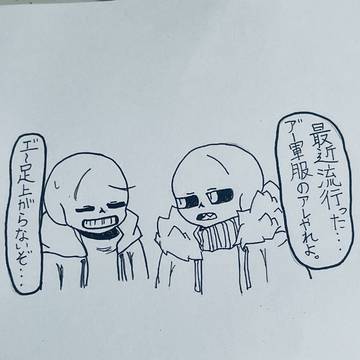 最近流行った…
アー軍服のアレやれよ。
エ～足上がらないぞ…